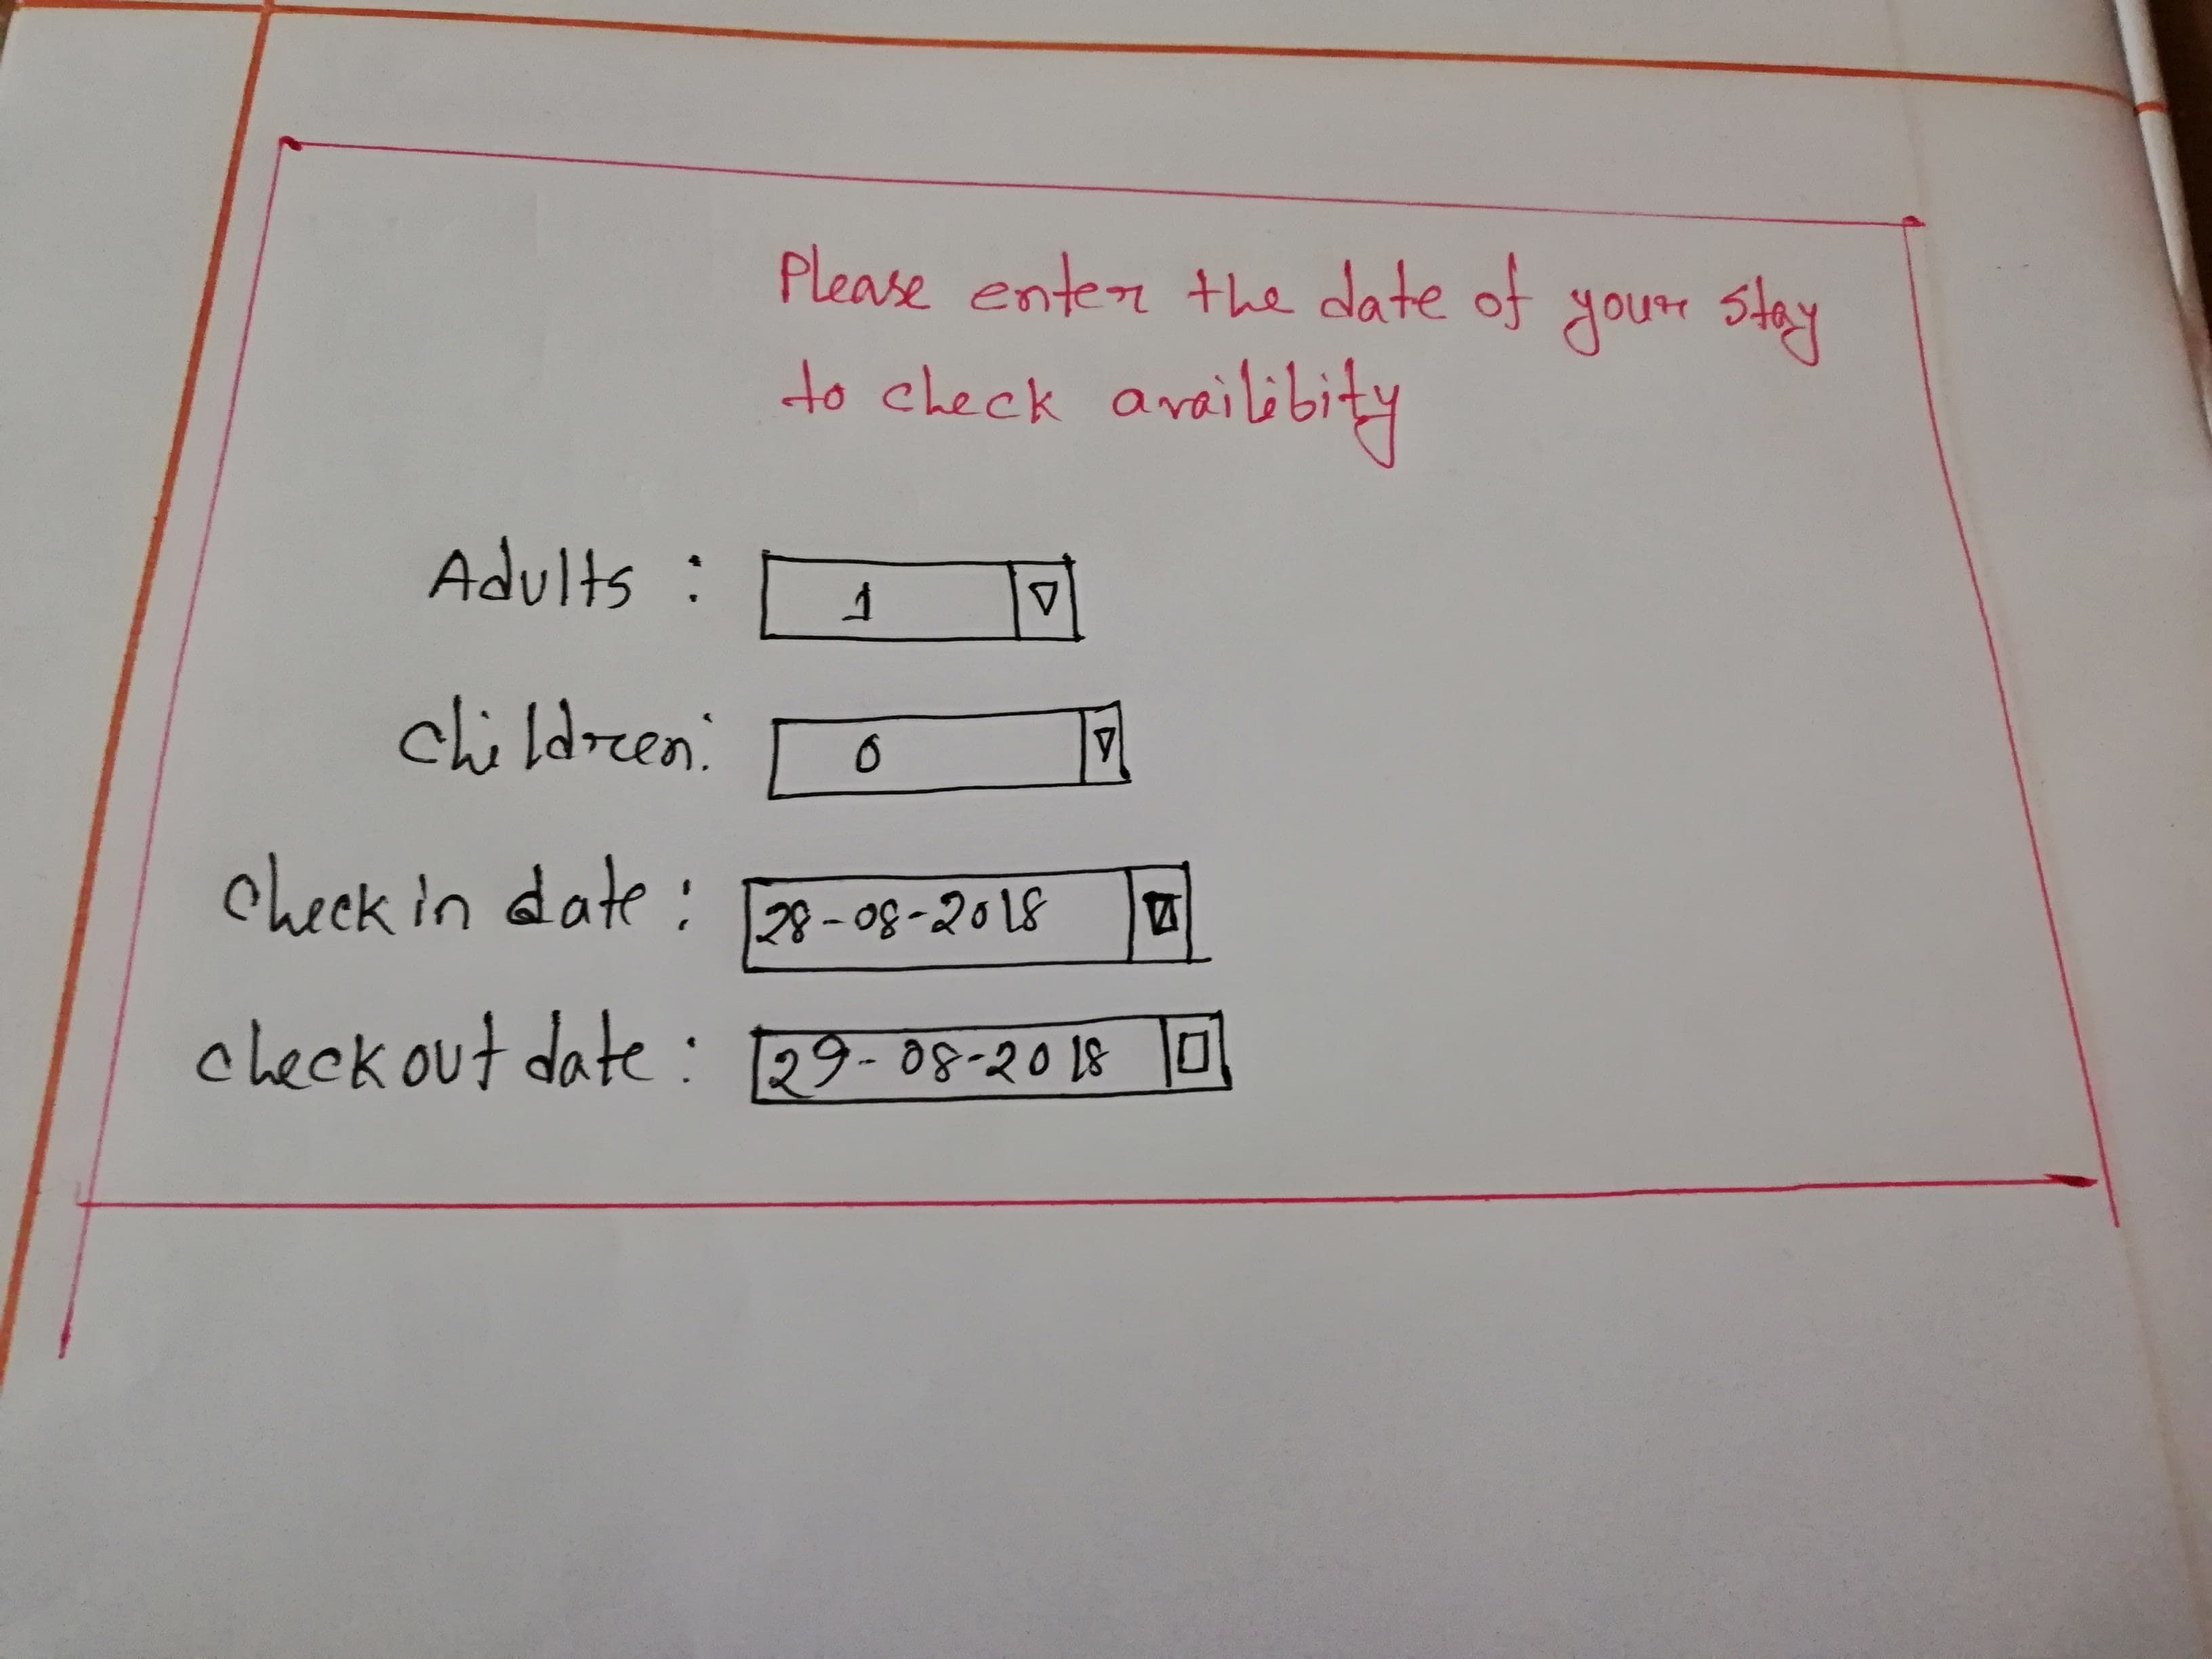 Please enter the date of your stay
to check availibity
Adults : 1
children: 0
Check in date : 28-08-2018
check out date : 29-08-2018